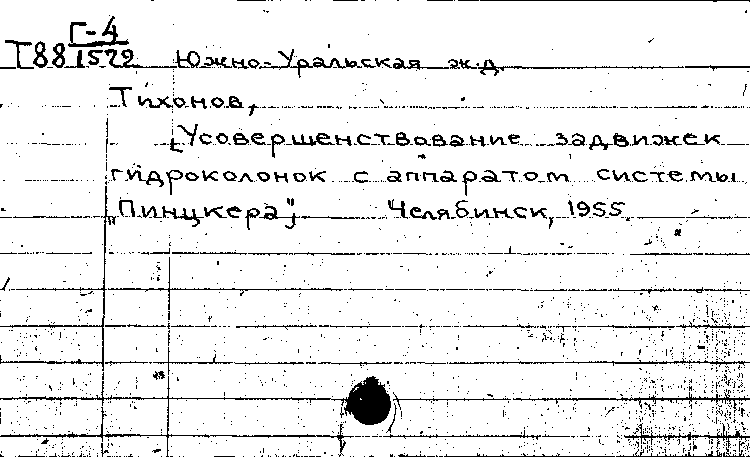 Г-4
Т88 1572 Южно-Уральская ж.д.
Тихонов,
[Усовершенствование задвижек
гидроколонок с аппаратом системы
„Пинцкера"] Челябинск, 1955.